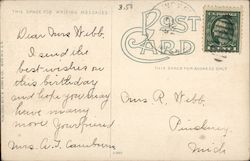 THIS SPACE FOR WRITING MESSAGES
3.50
POST
CARD
THIS SPACE FOR ADDRESS ONLY
Dear Mrs Webb,
I send the
best wishes on
this birthday
and hope you may
have many
more your friend
Mrs A. T.
Mrs R. Webb,
Pinckney
Mich